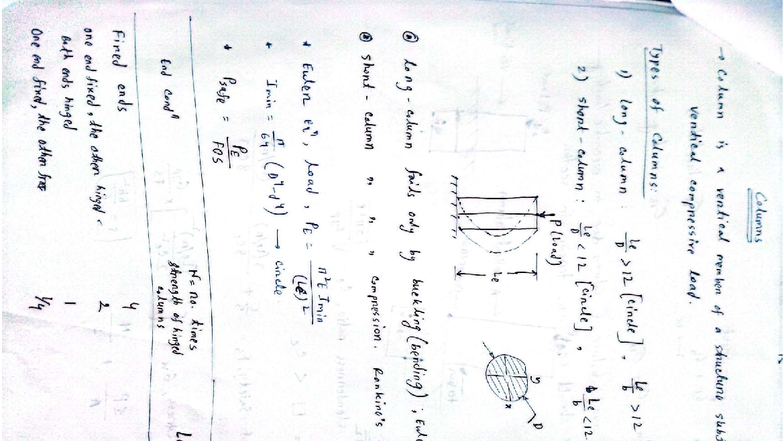 Columns
→ Column is a vertical member of a structure subj
vertical compressive load.
Types of Columns:
1) long-column : Le/D > 12 [circle], Le/b > 12
2) short-column : Le/D < 12 [circle], Le/b < 12
P (Load)
Le
y
x
D
ⓐ long-column fails only by buckling (bending) ; Eule
ⓑ short-column " " " compression. Rankine's
* Euler eqⁿ, Load, P_E = π²E Imin / (Le)²
* Imin = π/64 (D⁴-d⁴) → circle
* Psafe = P_E / FOS
End Condⁿ N = no. times
strength of hinged
columns L
Fixed ends 4
one end fixed, the other hinged 2
Both ends hinged 1
One end fixed, the other free 1/4